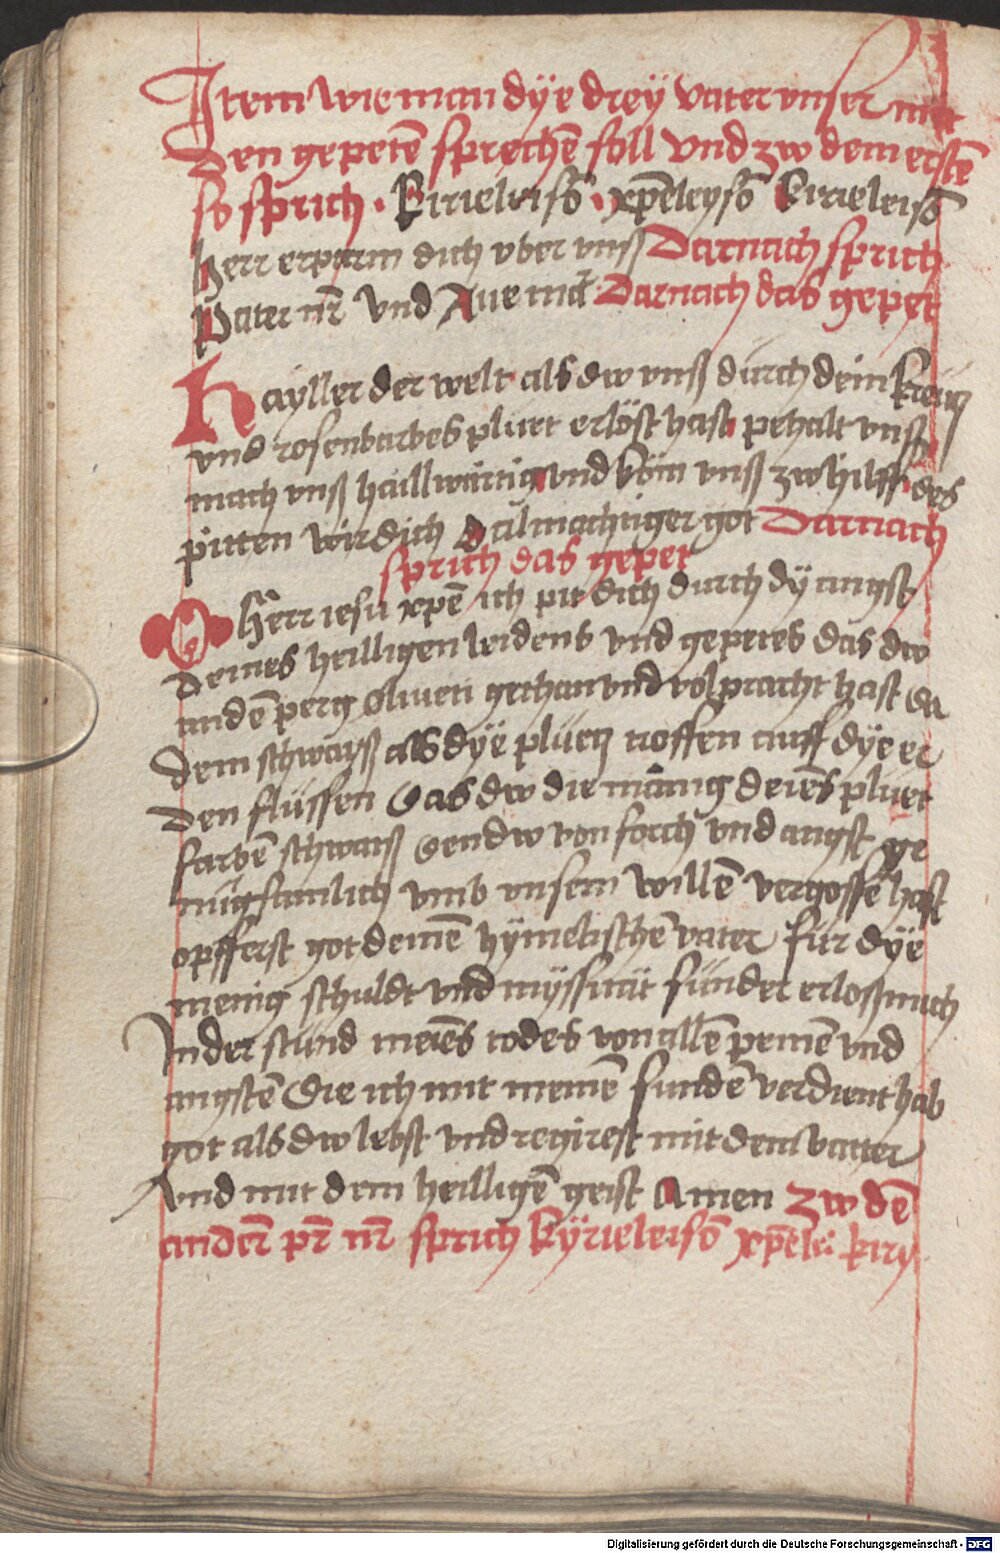 Item wie man dÿe dreÿ vater vnser mit
den gepetē sprechē soll vnd zw dem erstē
so sprich · Kirieleisō · xp̄eleysō kirieleisō
herr erparm dich vber vnß Darnach sprich
Pater nr̄ vnd Aue mā Darnach das gepet
Hayller der welt als dw vnß durch dein kreutz
vnd rosenbarbes pluet erlöst hast pehalt vnß
mach vnß haillwärtig vnd köm vnß zw hilff des
pitten wir dich almachtiger got Darnach
sprich das gepet
O Herr iesu xpē ich pit dich durch dÿ angst
deines heilligen leidens vnd gepetes das dw
an dē perg oliueti gethan vnd volpracht hast da
dein schwaiß als dÿe pluetz troffen auff dÿe er
den flussen Das dw die mänig deiēs pluet
farbē schwaiß den dw von forch vnd angst ge
nugsamlich vmb vnsern willē vergossē hast
opfferst got deinē hÿmelischē vater für dÿe
menig schuldt vnd myssetat sünder erloß mich
In der stund meiēs todes von allē peinē vnd
angstē Die ich mit meinē sundē verdient hab
got als dw lebst vnd regirest mit dem vatter
Vnd mit dem heilligē geist Amen Zw dē
anderē pr̄ nr̄ sprich kÿrieleisō xp̄ele: kiry
Digitalisierung gefördert durch die Deutsche Forschungsgemeinschaft - DFG